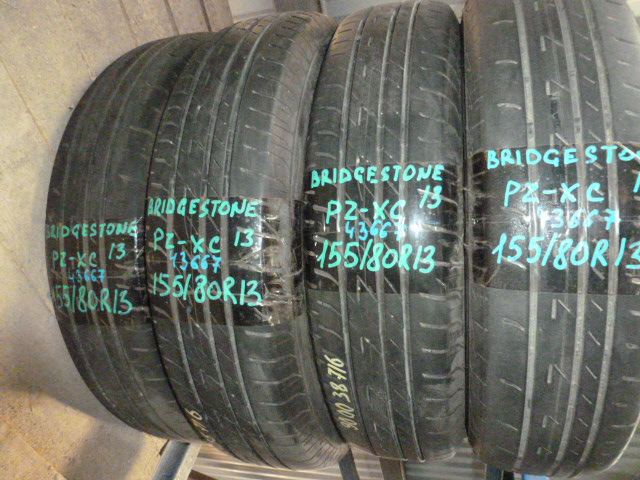 BRIDGESTONE
PZ-XC 13
43667
155/80R13
BRIDGESTONE
PZ-XC 13
43667
155/80R13
BRIDGESTONE
PZ-XC 13
43667
155/80R13
BRIDGESTO
PZ-XC 1
43667
155/80R13